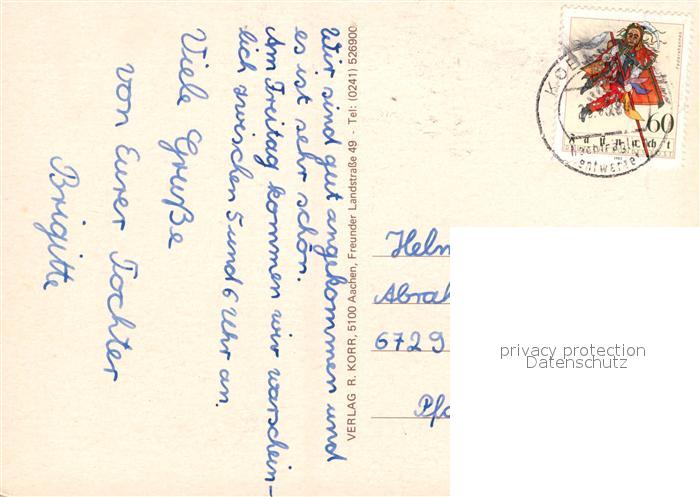 Wir sind gut angekommen und
es ist sehr schön.
Am Freitag kommen wir warschein-
lich zwischen 5 und 6 Uhr an.
Viele Grüße
von Eurer Tochter
Brigitte
VERLAG R. KORR, 5100 Aachen, Freunder Landstraße 49 - Tel: (0241) 526900
60
Helm
Abrah
6729
Pfa
privacy protection
Datenschutz